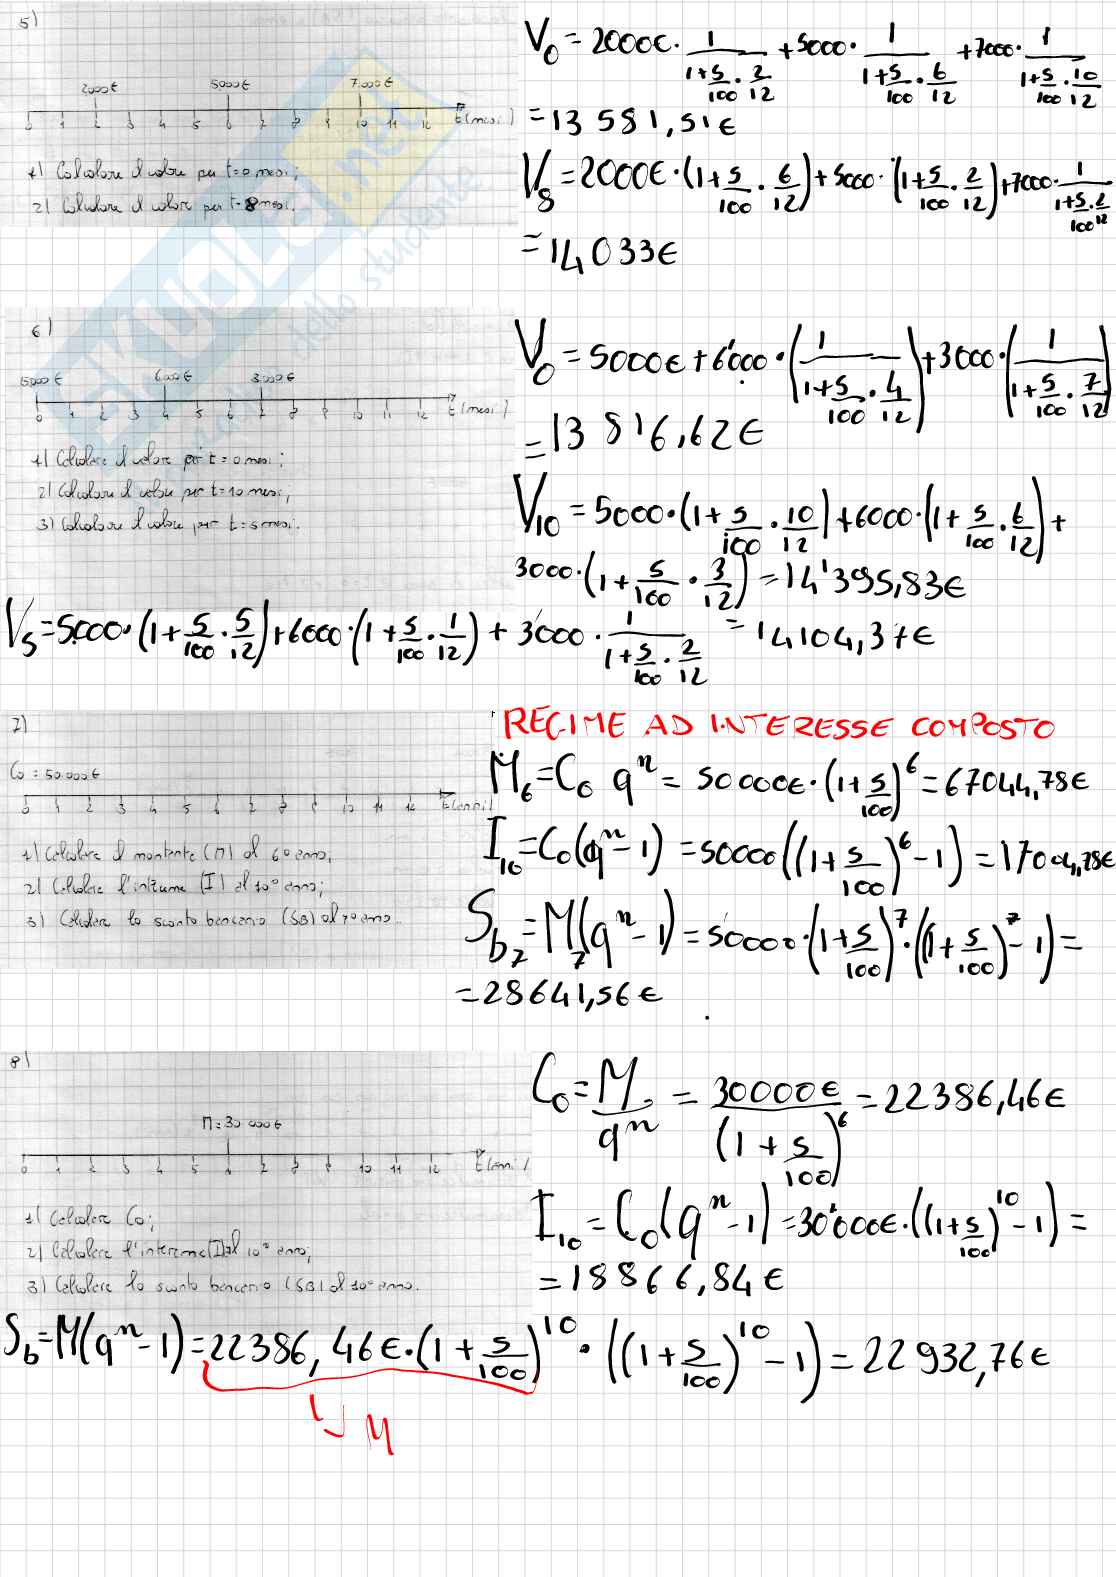 5)
2000€ 5000€ 7.000€
0 1 2 3 4 5 6 7 8 9 10 11 12 t(mesi)
1) Calcolare il valore per t=0 mesi;
2) Calcolare il valore per t=8 mesi.
V₀ = 2000€ · 1/(1+5/100 · 2/12) + 5000 · 1/(1+5/100 · 6/12) + 7000 · 1/(1+5/100 · 10/12)
= 13 581,51€
V₈ = 2000€ · (1+5/100 · 6/12) + 5000 · (1+5/100 · 2/12) + 7000 · 1/(1+5/100 · 2/12)
= 14 033€
SKUOLA.net
dello studente
6)
5000€ 6000€ 3000€
0 1 2 3 4 5 6 7 8 9 10 11 12 t(mesi)
1) Calcolare il valore per t=0 mesi;
2) Calcolare il valore per t=10 mesi;
3) Calcolare il valore per t=5 mesi.
V₀ = 5000€ + 6'000 · (1/(1+5/100 · 4/12)) + 3000 · (1/(1+5/100 · 7/12))
= 13 816,62€
V₁₀ = 5000 · (1+5/100 · 10/12) + 6000 · (1+5/100 · 6/12) +
3000 · (1+5/100 · 3/12) = 14'395,83€
V₅ = 5000 · (1+5/100 · 5/12) + 6000 · (1+5/100 · 1/12) + 3000 · 1/(1+5/100 · 2/12) = 14104,37€
7)
C₀ = 50.000€
0 1 2 3 4 5 6 7 8 9 10 11 12 t(anni)
1) Calcolare il montante (M) al 6° anno;
2) Calcolare l'interesse (I) al 10° anno;
3) Calcolare lo sconto bancario (SB) al 7° anno.
REGIME AD INTERESSE COMPOSTO
M₆ = C₀ qⁿ = 50000€ · (1+5/100)⁶ = 67044,78€
I₁₀ = C₀(qⁿ-1) = 50000((1+5/100)⁶ - 1) = 17004,78€
Sb₇ = M₇(qⁿ-1) = 50000 · (1+5/100)⁷ · ((1+5/100)⁷ - 1) =
= 28641,56€
8)
M = 30 000€
0 1 2 3 4 5 6 7 8 9 10 11 12 t(anni)
1) Calcolare C₀;
2) Calcolare l'interesse (I) al 10° anno;
3) Calcolare lo sconto bancario (SB) al 10° anno.
C₀ = M/qⁿ = 30000€/(1+5/100)⁶ = 22386,46€
I₁₀ = C₀(qⁿ-1) = 30'000€ · ((1+5/100)¹⁰ - 1) =
= 18866,84€
Sb = M(qⁿ-1) = 22386,46€ · (1+5/100)¹⁰ · ((1+5/100)¹⁰ - 1) = 22932,76€
M